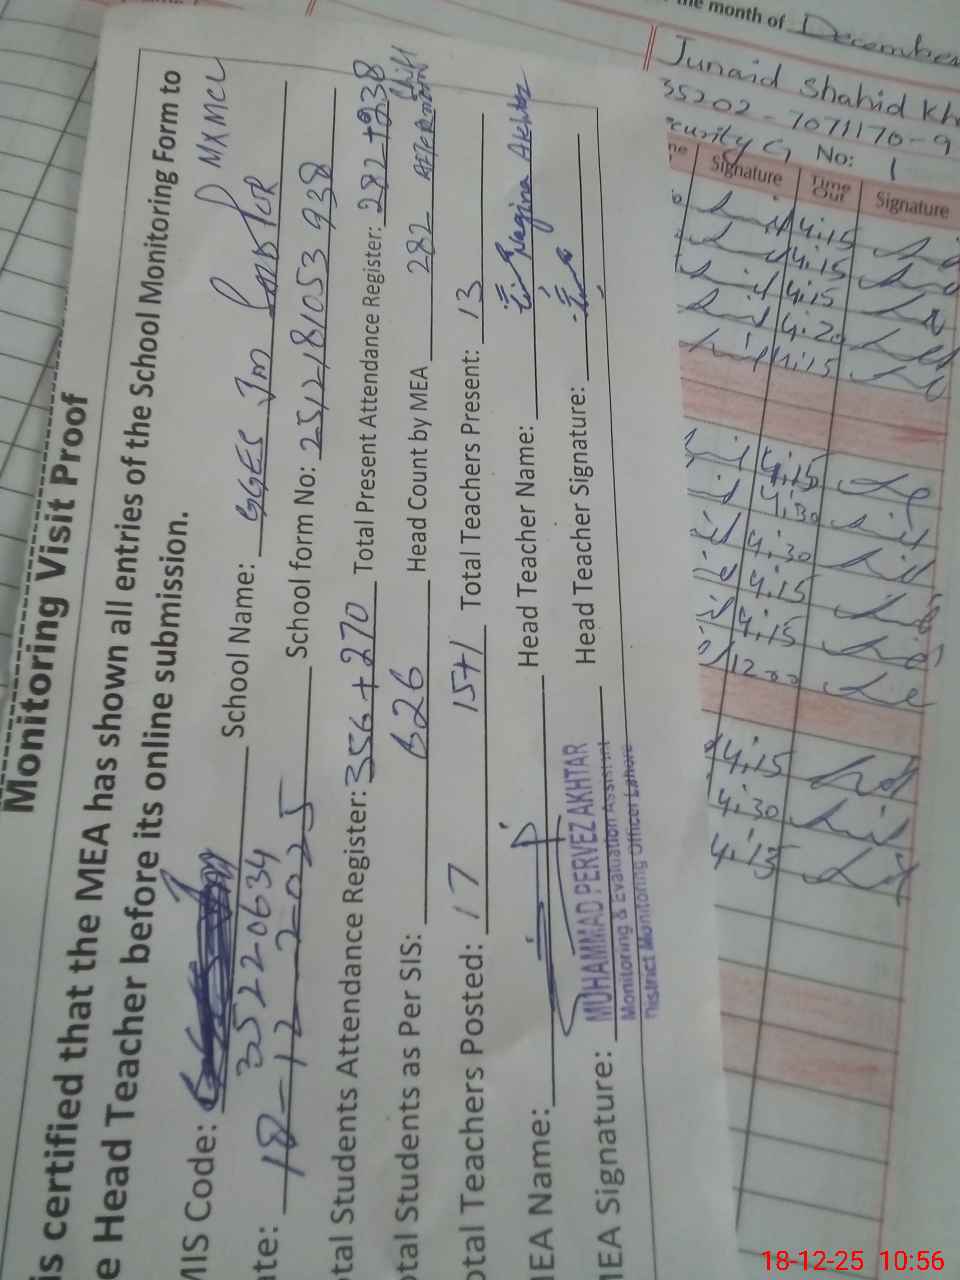 Monitoring Visit Proof
is certified that the MEA has shown all entries of the School Monitoring Form to
e Head Teacher before its online submission.
MIS Code: 35220634 School Name: GGES Jm MXMCL
ate: 18-12-2025 School form No: 2512181053938
otal Students Attendance Register: 356+270 Total Present Attendance Register: 282+238
otal Students as Per SIS: 626 Head Count by MEA 282 Afternoon Shift
otal Teachers Posted: 17 15+1 Total Teachers Present: 13
MEA Name: Head Teacher Name: Nagina Akhtar
MEA Signature: Head Teacher Signature:
MUHAMMAD PERVEZ AKHTAR
Monitoring & Evaluation Assistant
District Monitoring Officer Lahore
he month of December
Junaid Shahid Kh
35202-7071170-9
ecurity G No: 1
me Signature Time Out Signature
4:15
4:15
4:15
4:20
4:15
4:15
4:30
4:30
4:15
4:15
12:00
4:15
4:30
4:15
18-12-25 10:56